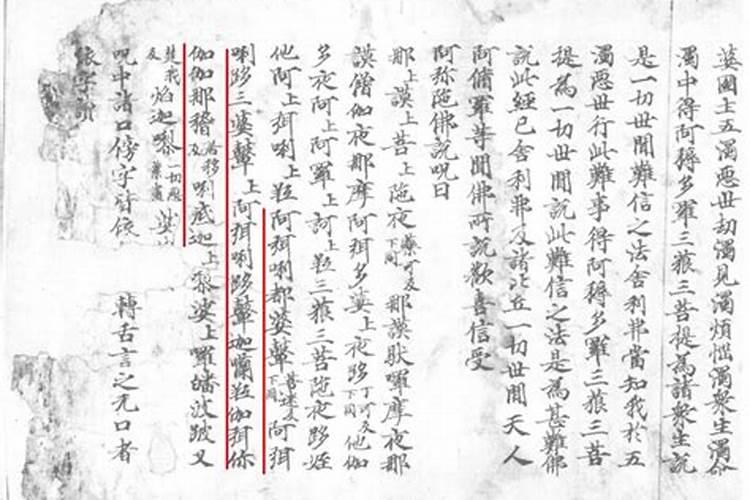 婆國土五濁惡世劫濁見濁煩惱濁衆生濁命
濁中得阿耨多羅三藐三菩提為諸衆生說
是一切世間難信之法舍利弗當知我於五
濁惡世行此難事得阿耨多羅三藐三菩
提為一切世間說此難信之法是為甚難佛
說此經已舍利弗及諸比丘一切世間天人
阿脩羅等聞佛所說歡喜信受
阿弥陁佛說呪曰
那上謨上菩上陁夜藥可反下同那謨馱囉摩夜那
謨僧伽夜那摩阿弭多婆上夜跢丁可反下同他伽
多夜阿上阿羅上訶上三藐三菩陁夜跢姪
他阿上弭唎上阿弭唎都婆鞞菩迷反下同阿弭
唎跢三婆鞞上阿弭唎跢鞞迦囒伽弭你
伽伽那稽居移反唎底迦上黎婆上囉皤波跛叉
楚我反焰迦黎一切惡業盡娑
呪中諸口傍字皆依轉舌言之无口者
依字讀